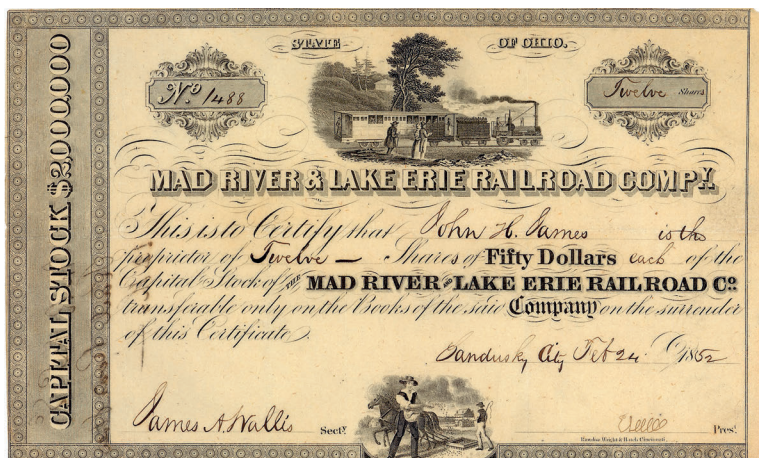 STATE OF OHIO.
No. 1488
Twelve Shares
MAD RIVER & LAKE ERIE RAILROAD COMPY.
This is to Certify that John H. James is the
proprietor of Twelve — Shares of Fifty Dollars each of the
Capital Stock of THE MAD RIVER AND LAKE ERIE RAILROAD CO.
transferable only on the Books of the said Company on the surrender
of this Certificate.
Sandusky City Feb 24. 1852
James A Wallis Secty.
Prest.
CAPITAL STOCK $2,000,000